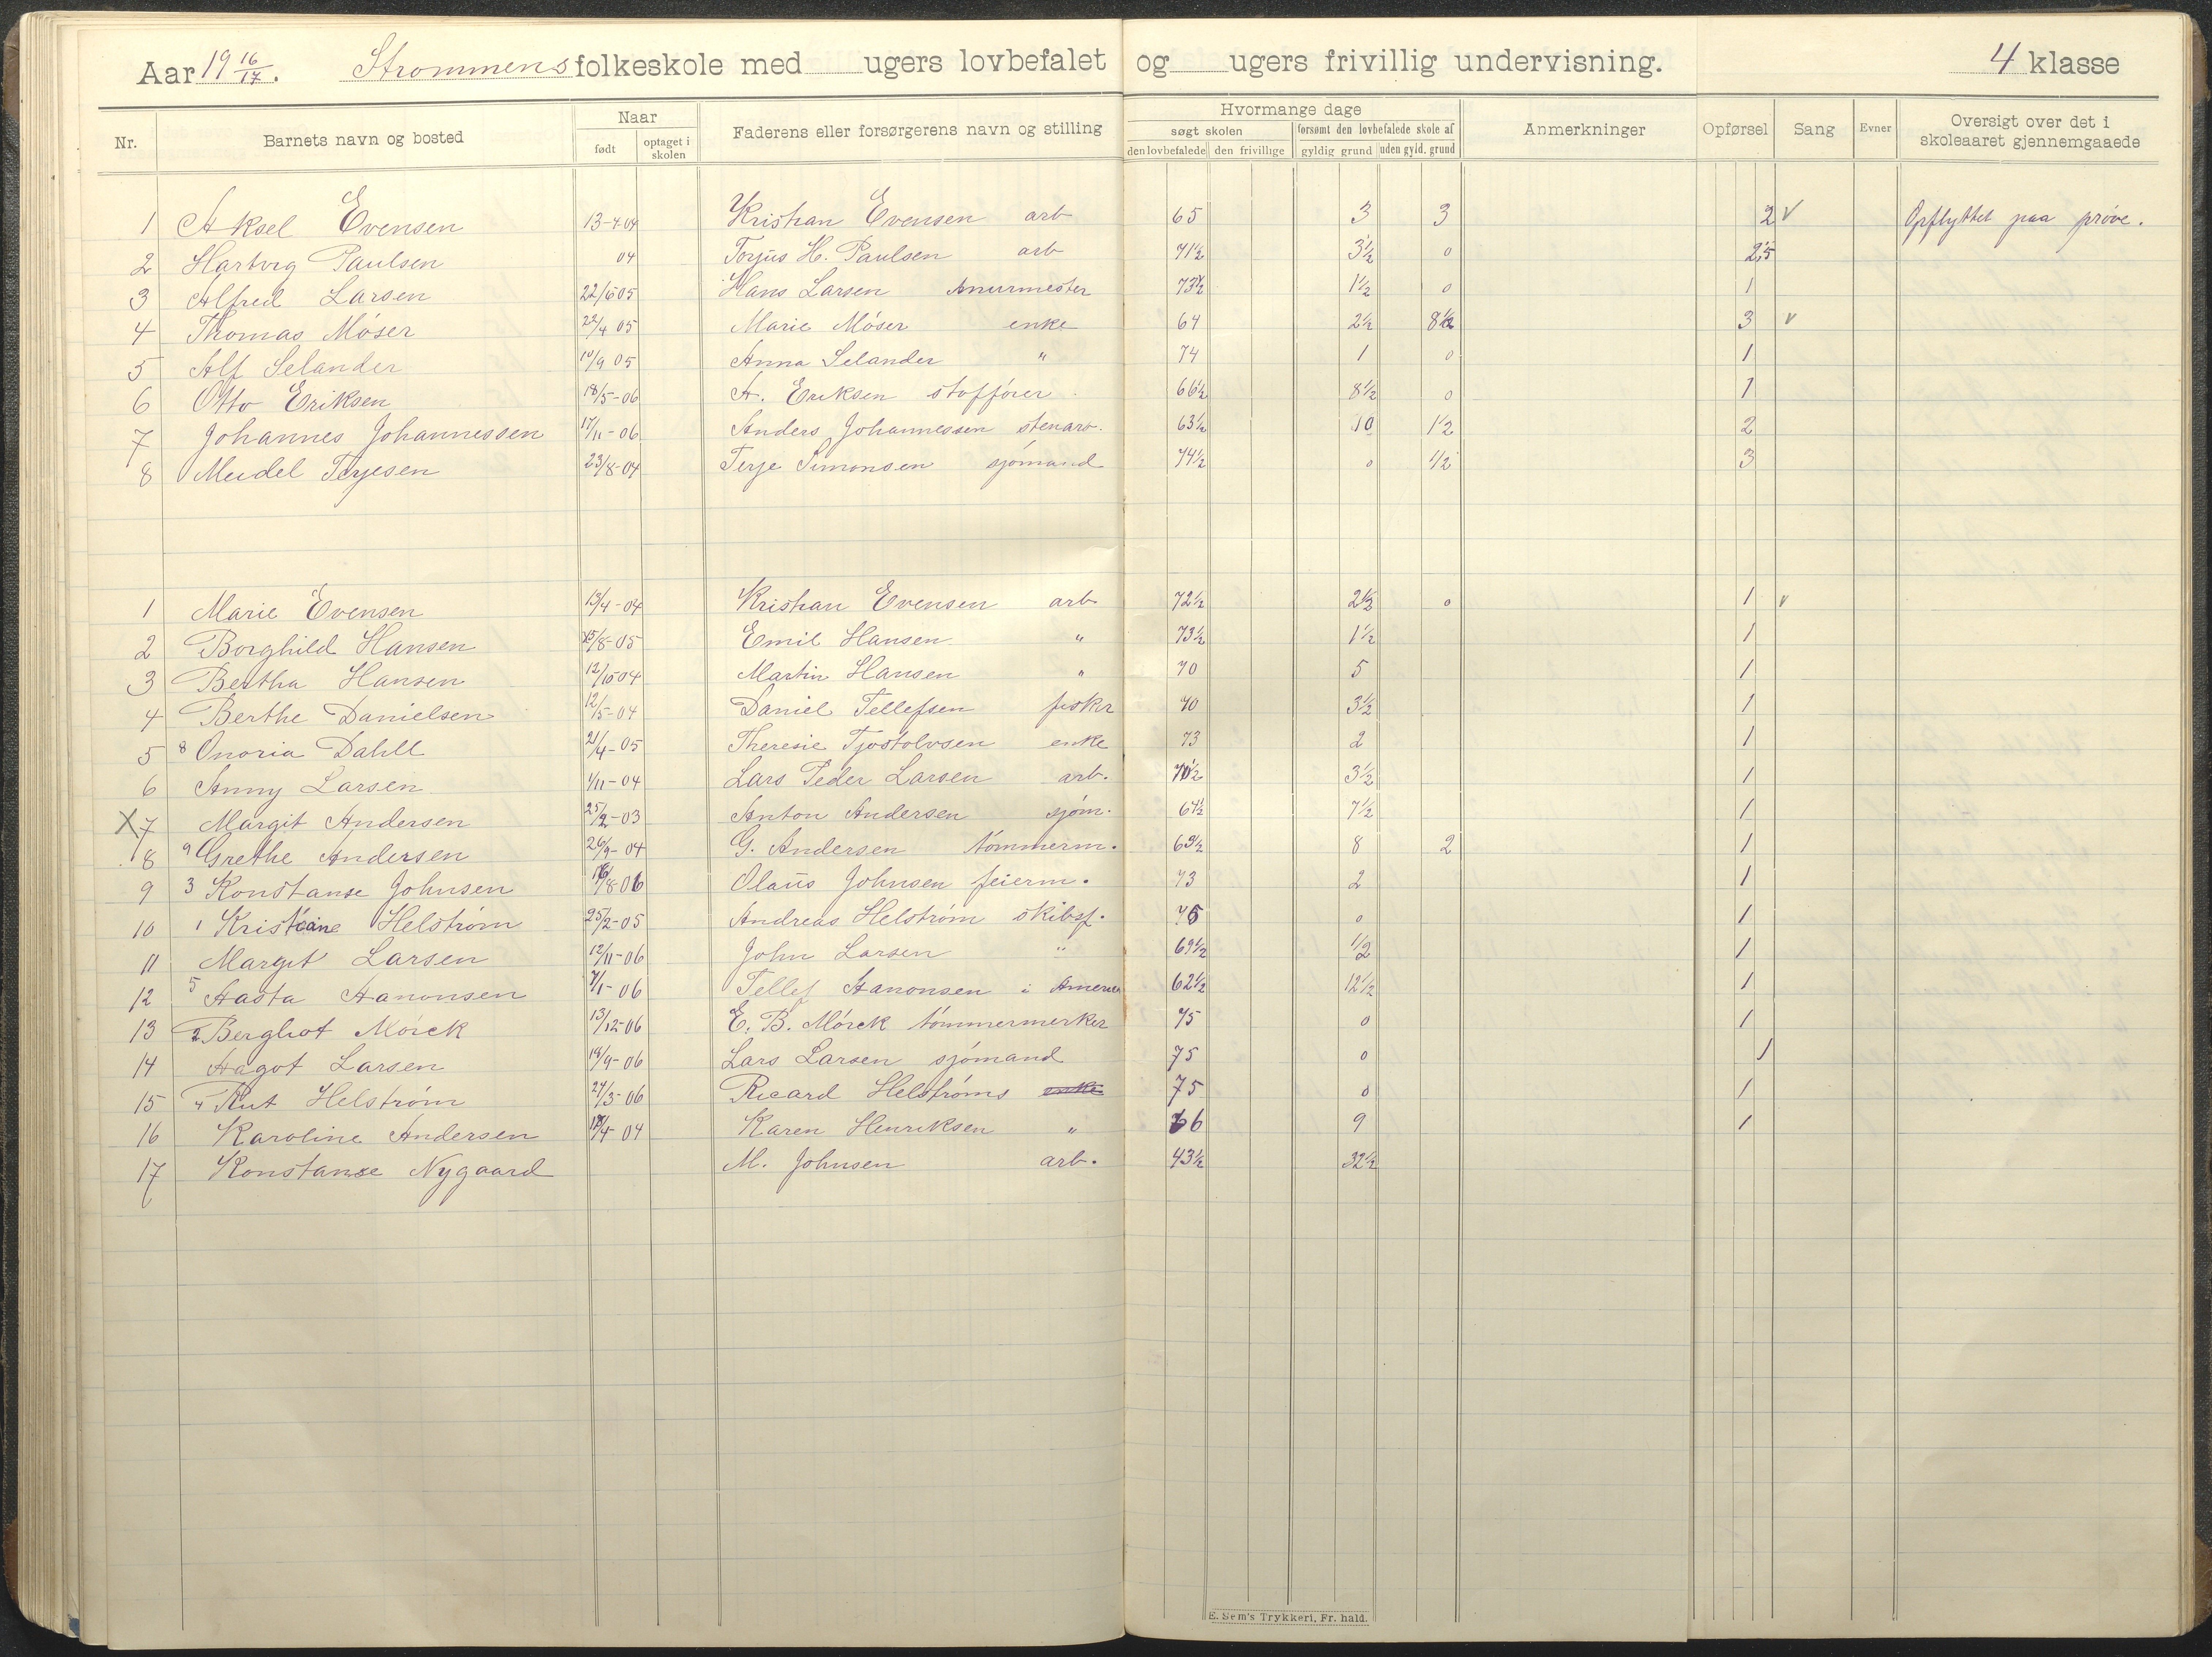 Aar 19 16/17. Strømmens folkeskole med ugers lovbefalet og ugers frivillig undervisning. 4 klasse
Nr. Barnets navn og bosted Naar født optaget i skolen Faderens eller forsørgerens navn og stilling Hvormange dage søgt skolen den lovbefalede den frivillige forsømt den lovbefalede skole af gyldig grund uden gyld. grund Anmerkninger Opførsel Sang Evner Oversigt over det i skoleaaret gjennemgaaede
1 Aksel Evensen 13-4-04 Kristian Evensen arb 65 3 3 2 v Opflyttet paa prøve.
2 Hartvig Paulsen 04 Torjus H. Paulsen arb 71½ 3½ 0 2,5
3 Alfred Larsen 22/6 05 Hans Larsen murmester 73½ 1½ 0 1
4 Thomas Møser 22/4 05 Marie Møser enke 64 2½ 8½ 3 v
5 Alf Selander 10/9 05 Anna Selander " 74 1 0 1
6 Otto Eriksen 18/5-06 A. Eriksen 66½ 8½ 0 1
7 Johannes Johannessen 17/11-06 Anders Johannessen stenarb. 63½ 10 1½ 2
8 Meidel Terjesen 23/8-04 Terje Simonsen sjømand 74½ 0 ½ 3
1 Marie Evensen 13/4-04 Kristian Evensen arb 72½ 2½ 0 1 v
2 Borghild Hansen 25/8-05 Emil Hansen " 73½ 1½ 1
3 Bertha Hansen 12/10-04 Martin Hansen " 70 5 1
4 Berthe Danielsen 12/5-04 Daniel Tellefsen fisker 70 3½ 1
5 8 Onoria Dahll 21/4-05 Theresie Tjøstolvsen enke 73 2 1
6 Anny Larsen 1/11-04 Lars Peder Larsen arb. 70½ 3½ 1
X 7 Margit Andersen 25/2-03 Anton Andersen sjøm. 67½ 7½ 1
8 9 Grethe Andersen 26/9-04 G. Andersen tømmerm. 63½ 8 2 1
9 3 Konstanse Johnsen 16/8 06 Olaus Johnsen feierm. 73 2 1
10 1 Kristiane Helstrøm 25/2-05 Andreas Helstrøm skibsf. 75 0 1
11 Margit Larsen 12/11-06 John Larsen " 69½ ½ 1
12 5 Aasta Aanonsen 7/1-06 Tellef Aanonsen i Amerika 62½ 12½ 1
13 2 Bergliot Mørck 13/12-06 E. B. Mørck tømmermerker 75 0 1
14 Aagot Larsen 19/9-06 Lars Larsen sjømand 75 0 1
15 4 Rut Helstrøm 27/3-06 Ricard Helstrøms enke 75 0 1
16 Karoline Andersen 18/4 04 Karen Henriksen " 66 9 1
17 Konstanse Nygaard M. Johnsen arb. 43½ 32½
E. Sem's Trykkeri, Fr. hald.